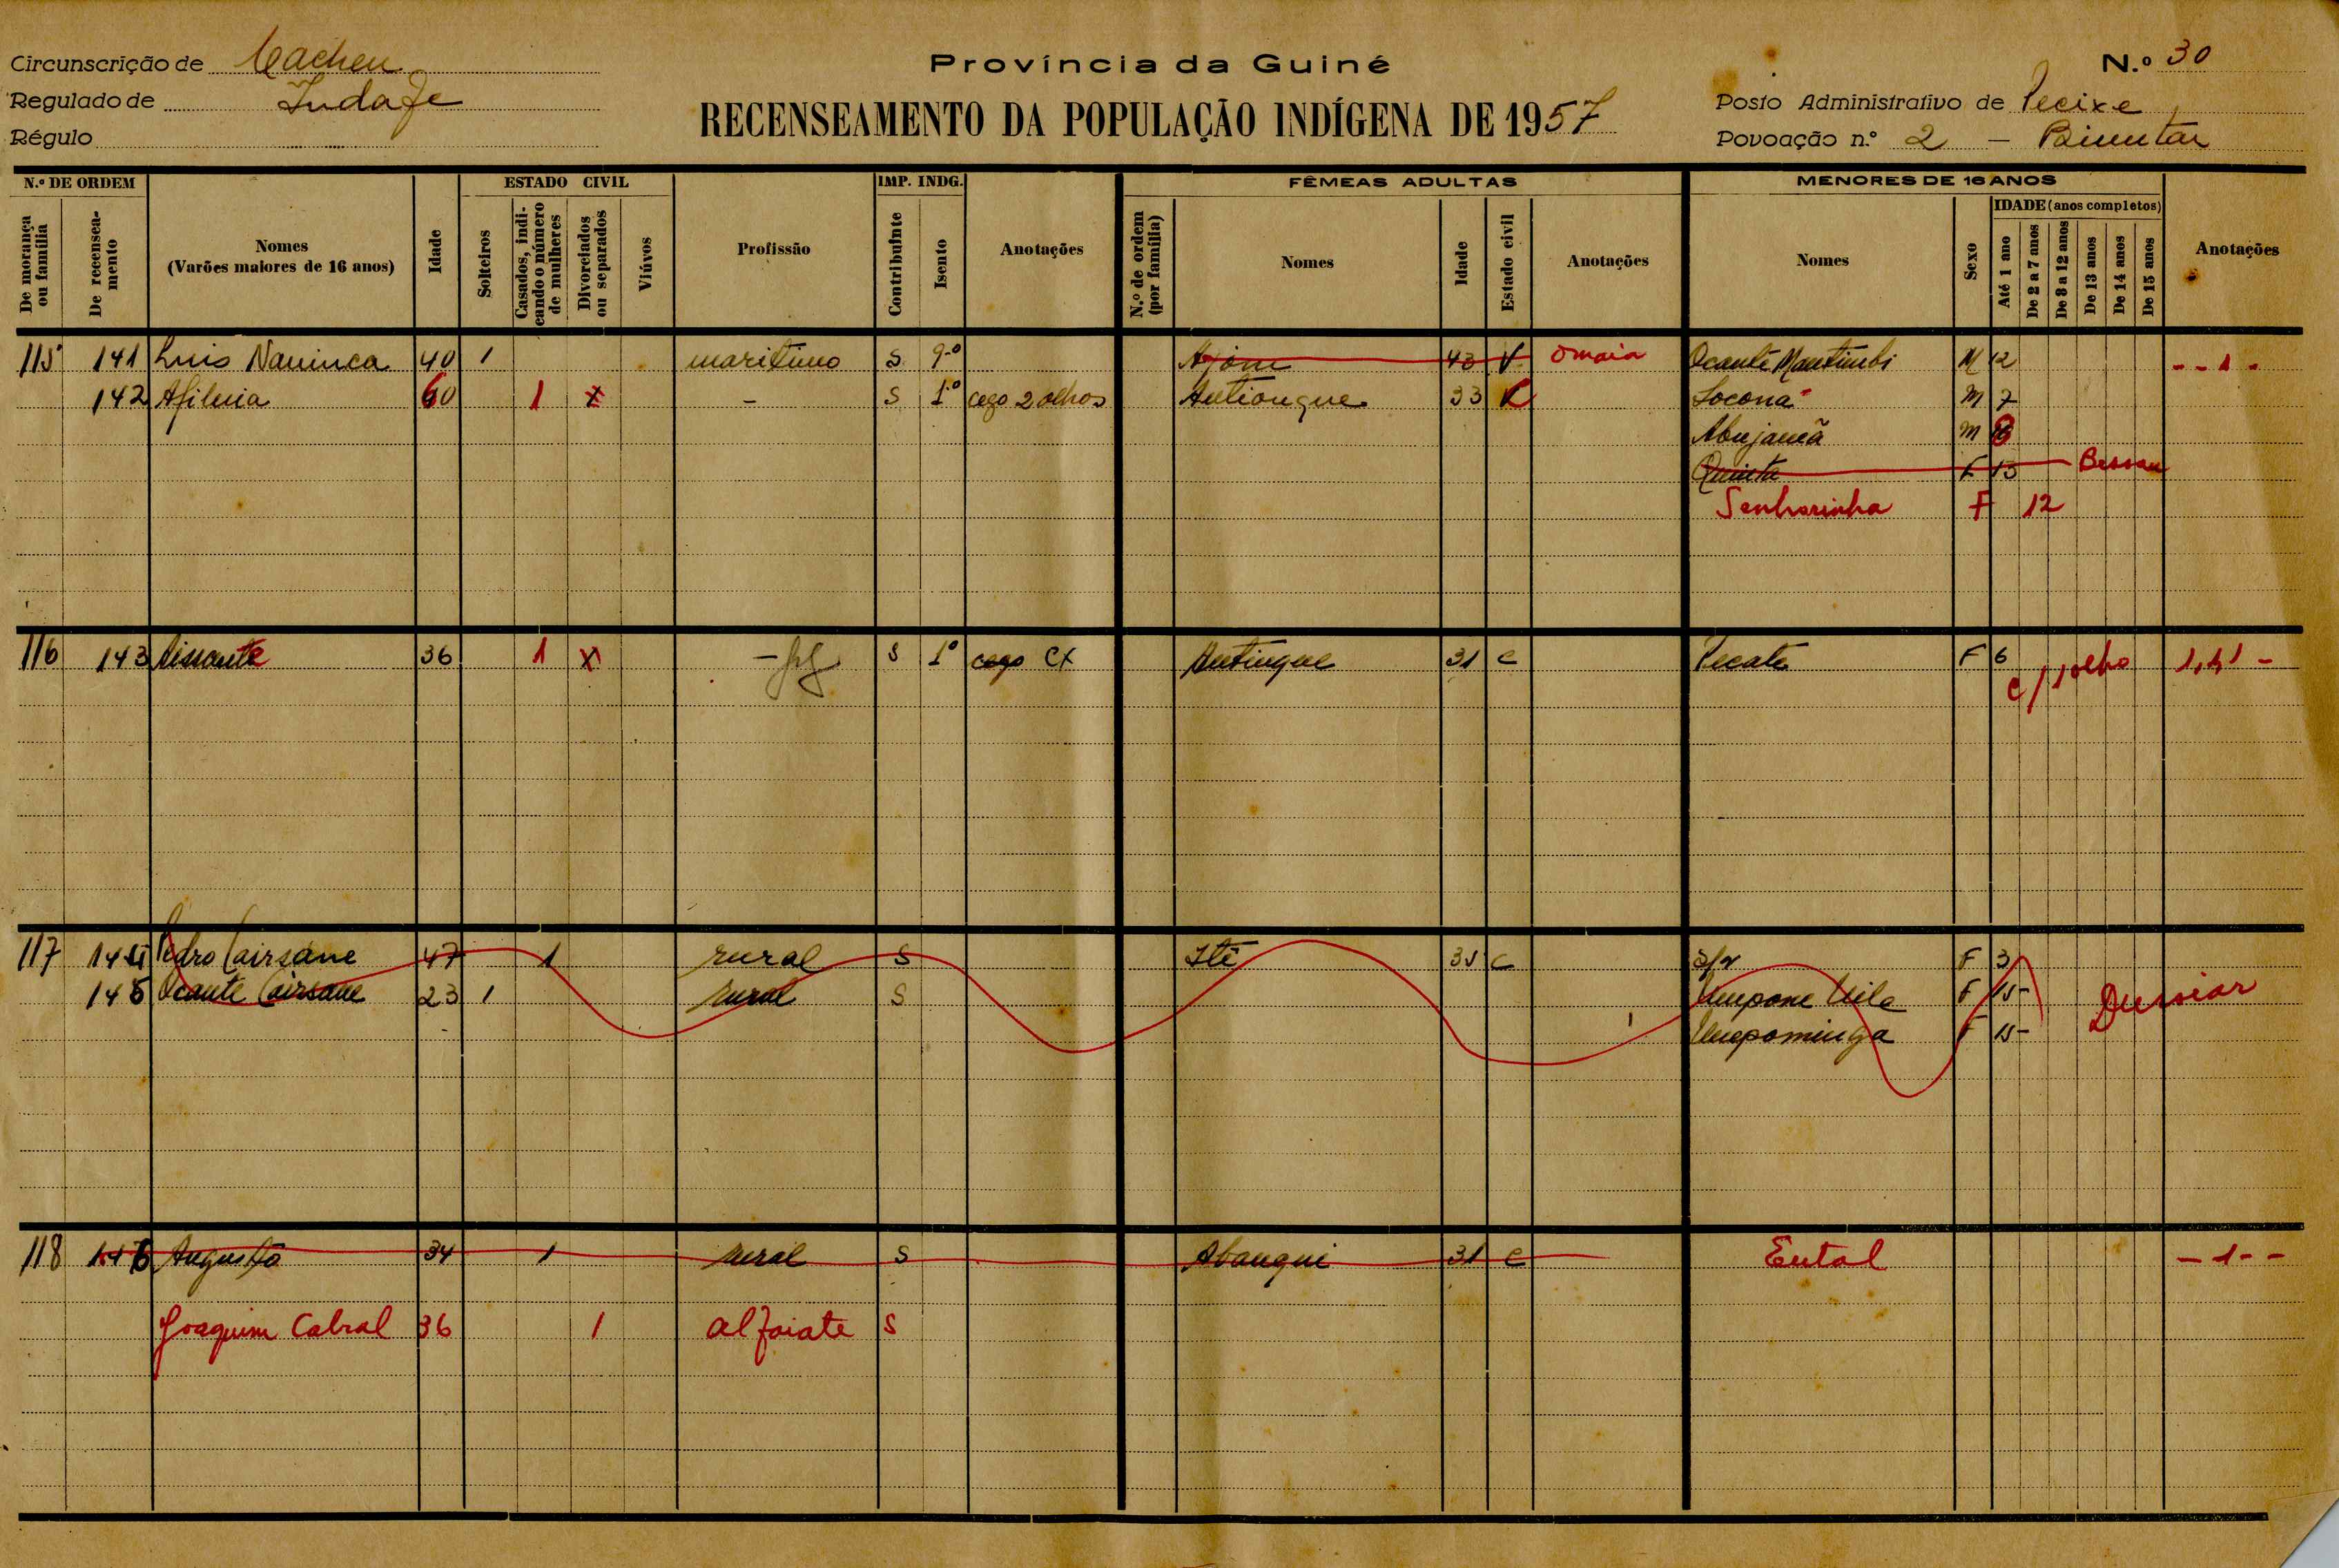 Circunscrição de Cacheu
Regulado de Indafe
Régulo
Província da Guiné
RECENSEAMENTO DA POPULAÇÃO INDÍGENA DE 1957
N.º 30
Posto Administrativo de Pecixe
Povoação n.º 2 —
N.º DE ORDEM
De morança ou família
De recenseamento
Nomes
(Varões maiores de 16 anos)
Idade
ESTADO CIVIL
Solteiros
Casados, indicando o número de mulheres
Divorciados ou separados
Viúvos
Profissão
IMP. INDG.
Contribuinte
Isento
Anotações
FÊMEAS ADULTAS
N.º de ordem (por família)
Nomes
Idade
Estado civil
Anotações
MENORES DE 16 ANOS
Nomes
Sexo
IDADE (anos completos)
Até 1 ano
De 2 a 7 anos
De 8 a 12 anos
De 13 anos
De 14 anos
De 15 anos
Anotações
115 141 Luis Naninca 40 1 maritimo S 9.º 43 V M 12 - - 1 -
142 60 1 X - S 1.º cego 2 olhos 33 Locona M 7
M
Quinta F 13 Bissau
Senhorinha F 12
116 143 36 1 X - S 1.º cego CX 31 C Pecate F 6 c/ 1 olho
117 144 Pedro Cairsane 47 1 rural S Itê C s/n F 3
145 Ocante Cairsane 23 1 rural S F 15
F 15
118 146 Augusto 34 1 rural S Abangui 31 C - 1 - -
Joaquim Cabral 36 1 alfaiate S